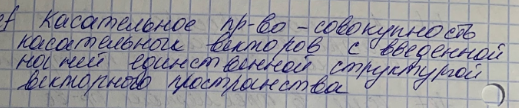 ef Касательное пр-во - совокупность
касательных векторов с введенной
на ней единственной структурой
векторного пространства